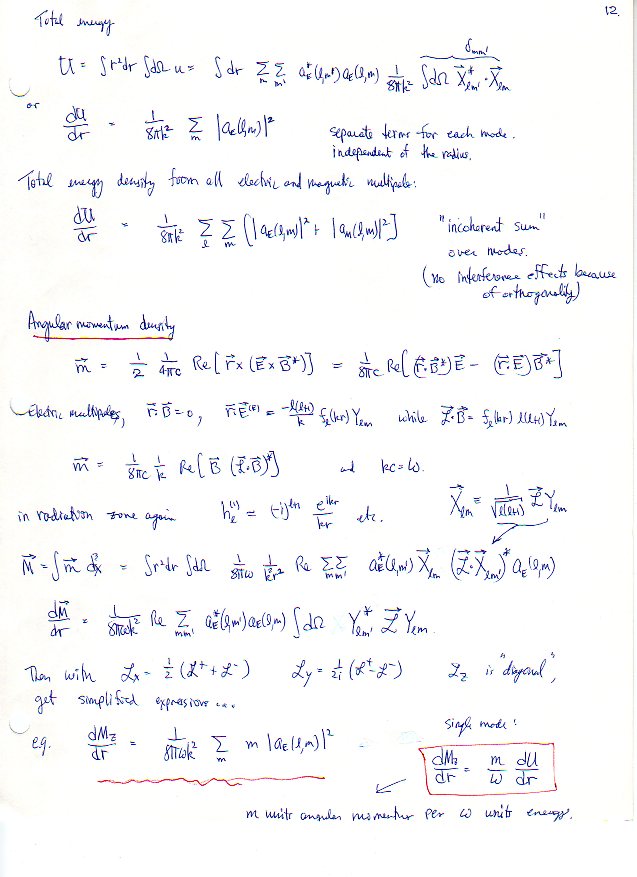 12.
Total energy
U = ∫r²dr ∫dΩ u = ∫dr Σ_m Σ_m' a_E*(l,m') a_E(l,m) 1/8πk² ∫dΩ X⃗*_lm' · X⃗_lm δ_mm'
or dU/dr = 1/8πk² Σ_m |a_E(l,m)|² separate terms for each mode.
independent of the radius.
Total energy density from all electric and magnetic multipoles:
dU/dr = 1/8πk² Σ_l Σ_m [|a_E(l,m)|² + |a_M(l,m)|²] "incoherent sum"
over modes.
(no interference effects because
of orthogonality)
Angular momentum density
m⃗ = 1/2 1/4πc Re[r⃗×(E⃗×B⃗*)] = 1/8πc Re[(r⃗·B⃗*)E⃗ − (r⃗·E⃗)B⃗*]
Electric multipoles, r⃗·B⃗=0, r⃗·E⃗^(E) = −l(l+1)/k f_l(kr) Y_lm while ℒ⃗·B⃗ = f_l(kr) l(l+1) Y_lm
m⃗ = 1/8πc 1/k Re[B⃗ (ℒ⃗·B⃗)*] and kc=ω.
in radiation zone again h_l^(1) = (−i)^(l+1) e^(ikr)/kr etc. X⃗_lm = 1/√l(l+1) ℒ⃗ Y_lm
M⃗ = ∫m⃗ d³x = ∫r²dr ∫dΩ 1/8πω 1/k²r² Re Σ_m Σ_m' a_E*(l,m') X⃗_lm (ℒ⃗·X⃗_lm')* a_E(l,m)
dM⃗/dr = 1/8πωk² Re Σ_mm' a_E*(l,m') a_E(l,m) ∫dΩ Y*_lm' ℒ⃗ Y_lm.
Then with ℒ_x = 1/2 (ℒ⁺+ℒ⁻) ℒ_y = 1/2i (ℒ⁺−ℒ⁻) ℒ_z is "diagonal",
get simplified expressions ...
e.g. dM_z/dr = 1/8πωk² Σ_m m |a_E(l,m)|²
single mode:
dM_z/dr = m/ω dU/dr
m units angular momentum per ω units energy.